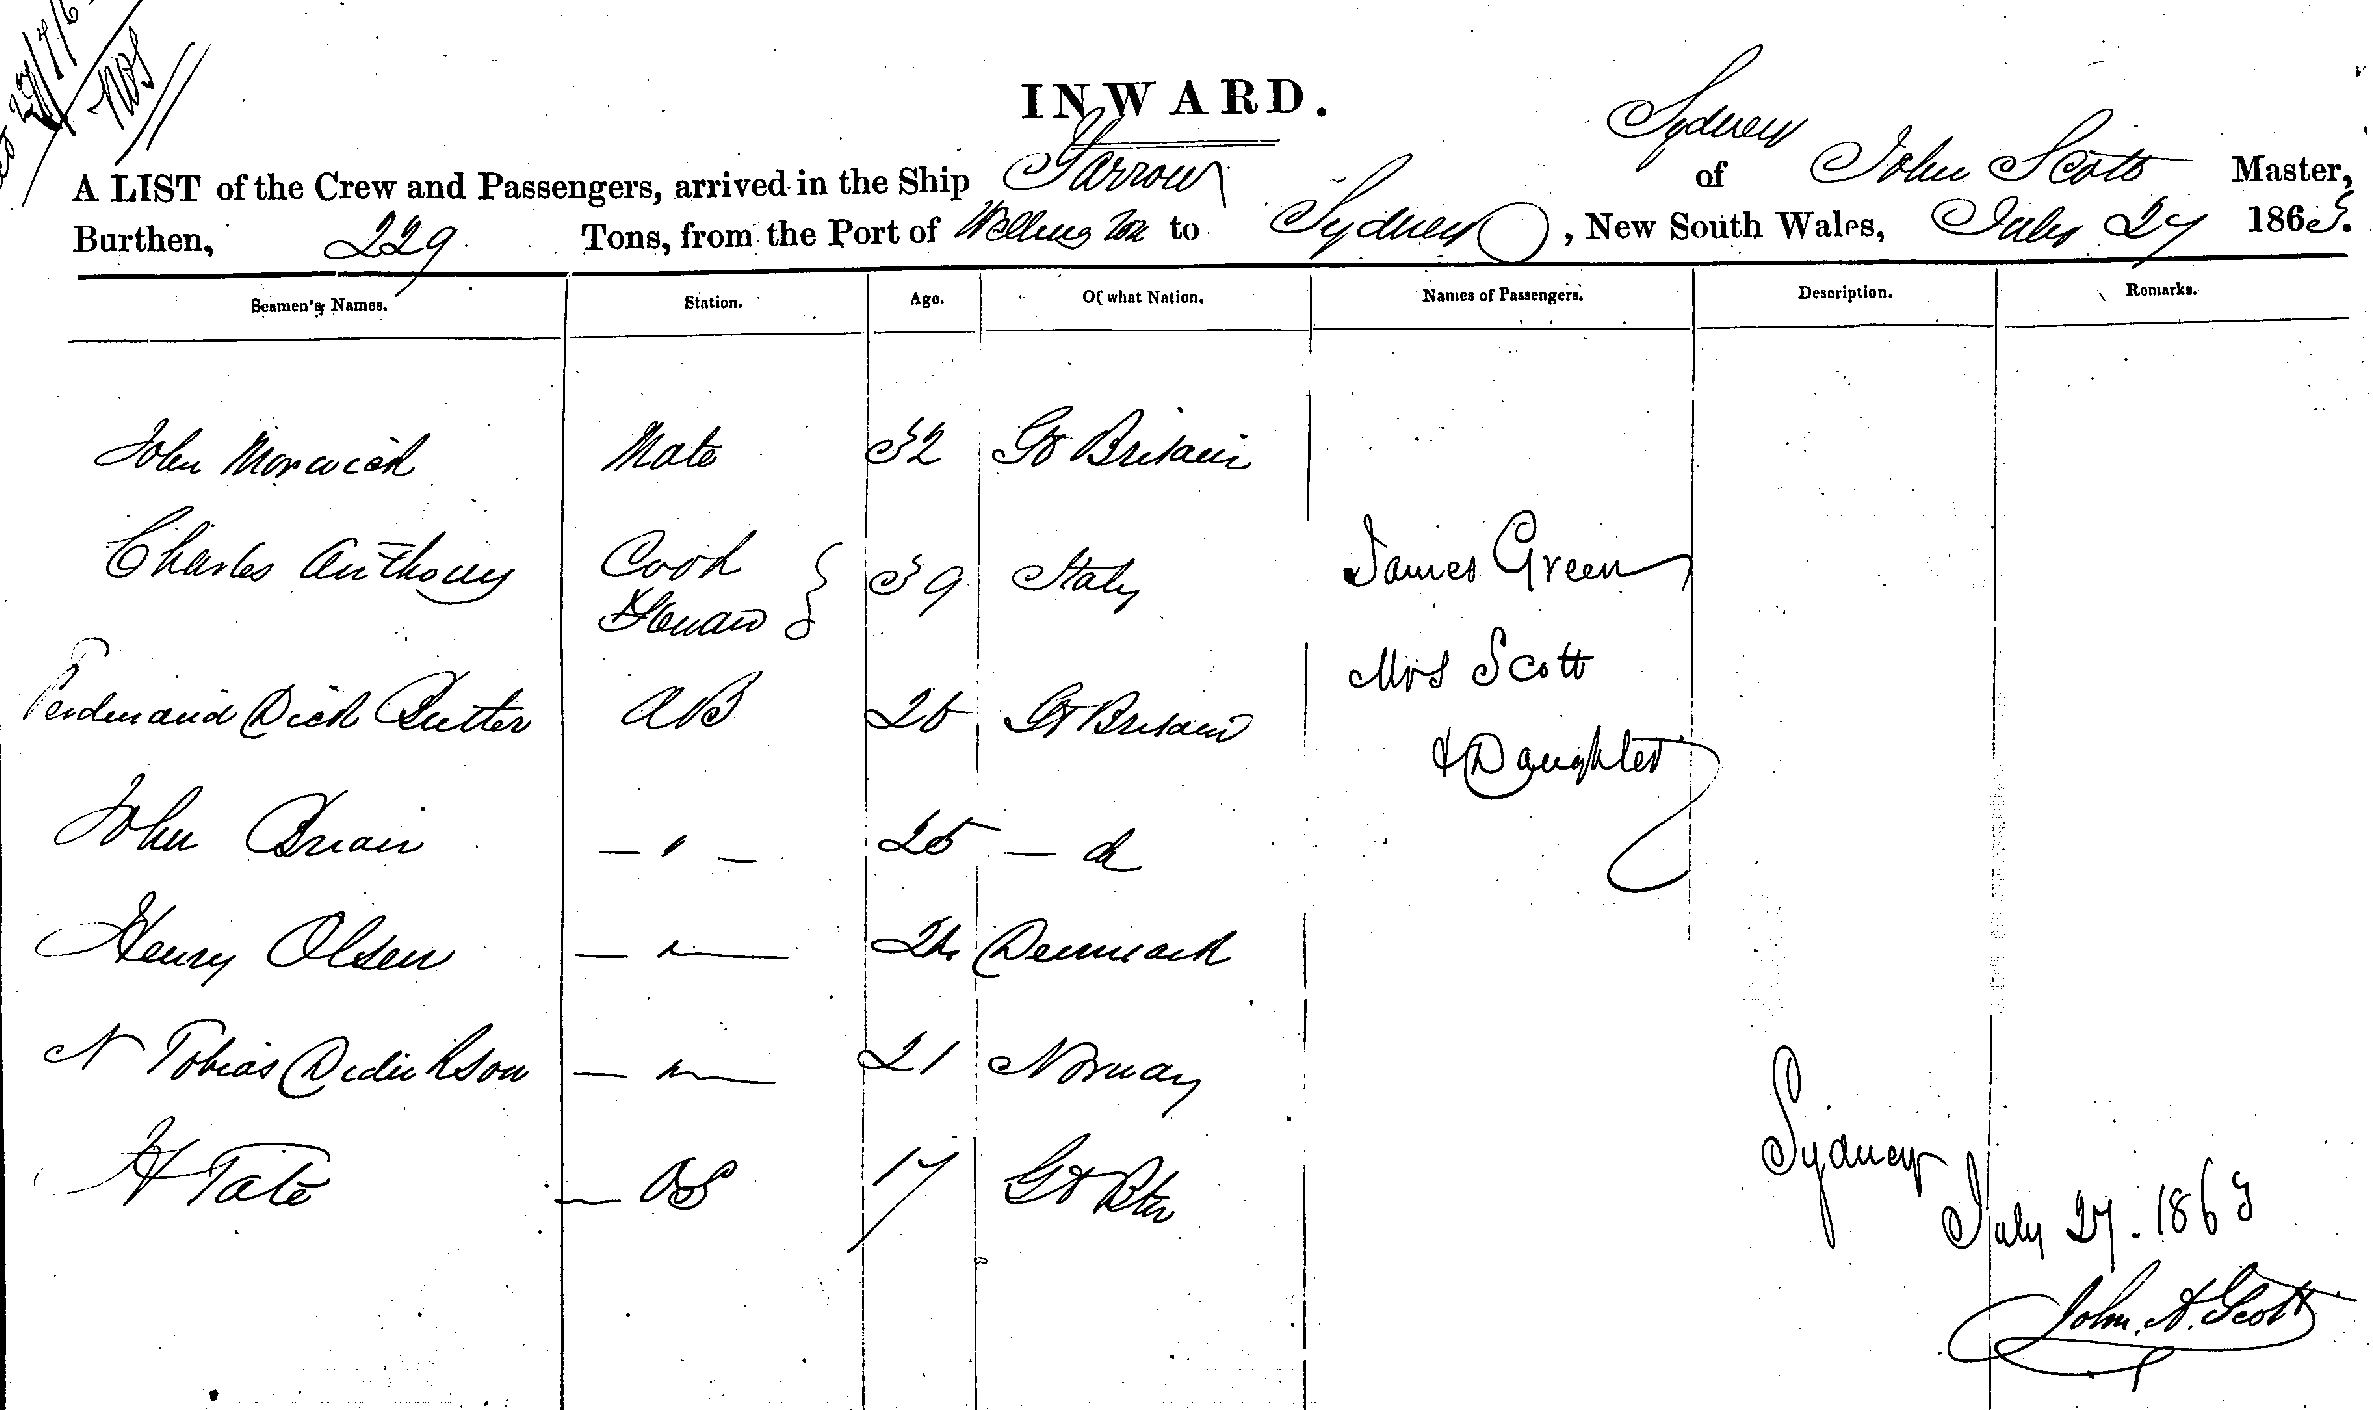 27/7/63
INWARD.
Sydney
A LIST of the Crew and Passengers, arrived in the Ship Yarrow of John Scott Master,
Burthen, 229 Tons, from the Port of Wellington to Sydney, New South Wales, July 27 1863.
Seamen's Names. Station. Age. Of what Nation. Names of Passengers. Description. Remarks.
John Morwick Mate 32 Gt Britain
Charles Anthony Cook 39 Italy James Green
& Steward
Mrs Scott
Ferdinand Dick Butter AB 25 Gt Britain
& Daughter
John Brian — " — 25 — do
Henry Olsen — " — 24 Denmark
N Tobias Dedrickson — " — 21 Norway
H Tate — OS 17 Gt Btn
Sydney
July 27. 1863
John. A. Scott